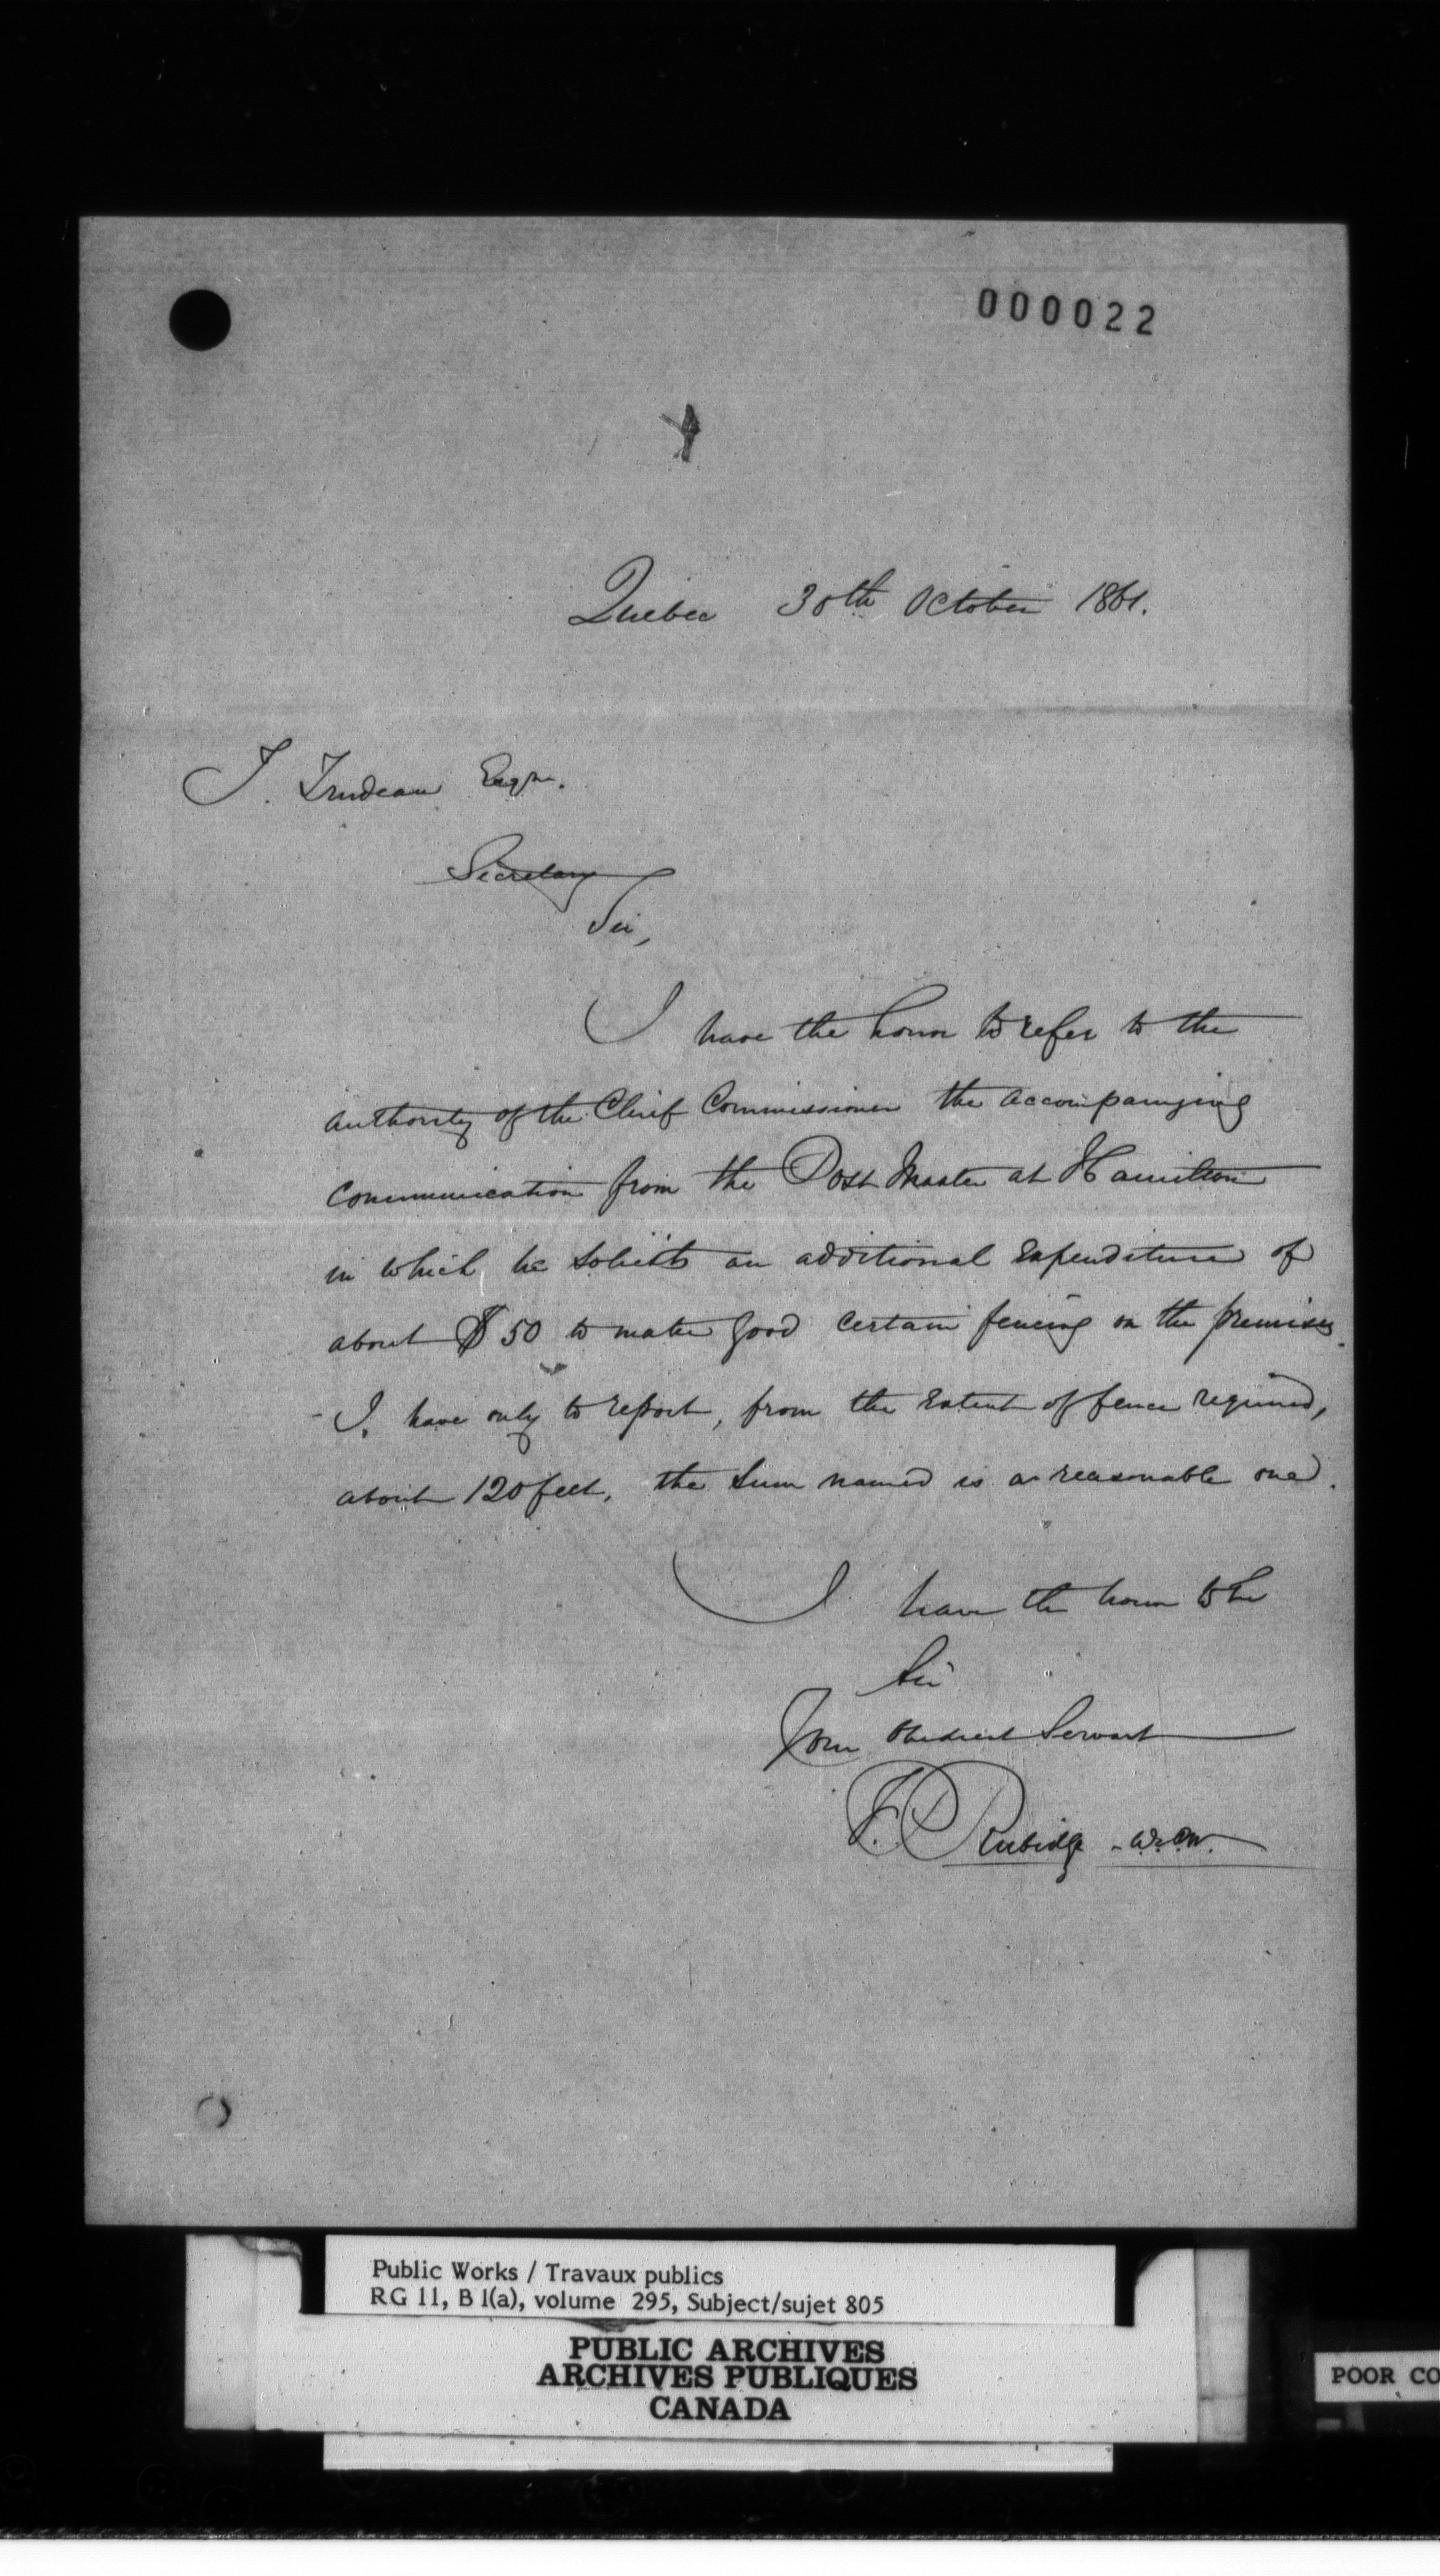 000022
Quebec 30th October 1861.
T. Trudeau Esqr.
Secretary
Sir,
I have the honor to refer to the
authority of the Chief Commissioner the accompanying
communication from the Post Master at Hamilton
in which he solicits an additional expenditure of
about $50 to make good certain fencing on the premises.
- I have only to report, from the extent of fence required,
about 120 feet, the sum named is a reasonable one.
I have the honor to be
Sir
Your Obedient Servant
F. P. Rubidge
Public Works / Travaux publics
RG 11, B 1(a), volume 295, Subject/sujet 805
PUBLIC ARCHIVES
ARCHIVES PUBLIQUES
CANADA
POOR CO